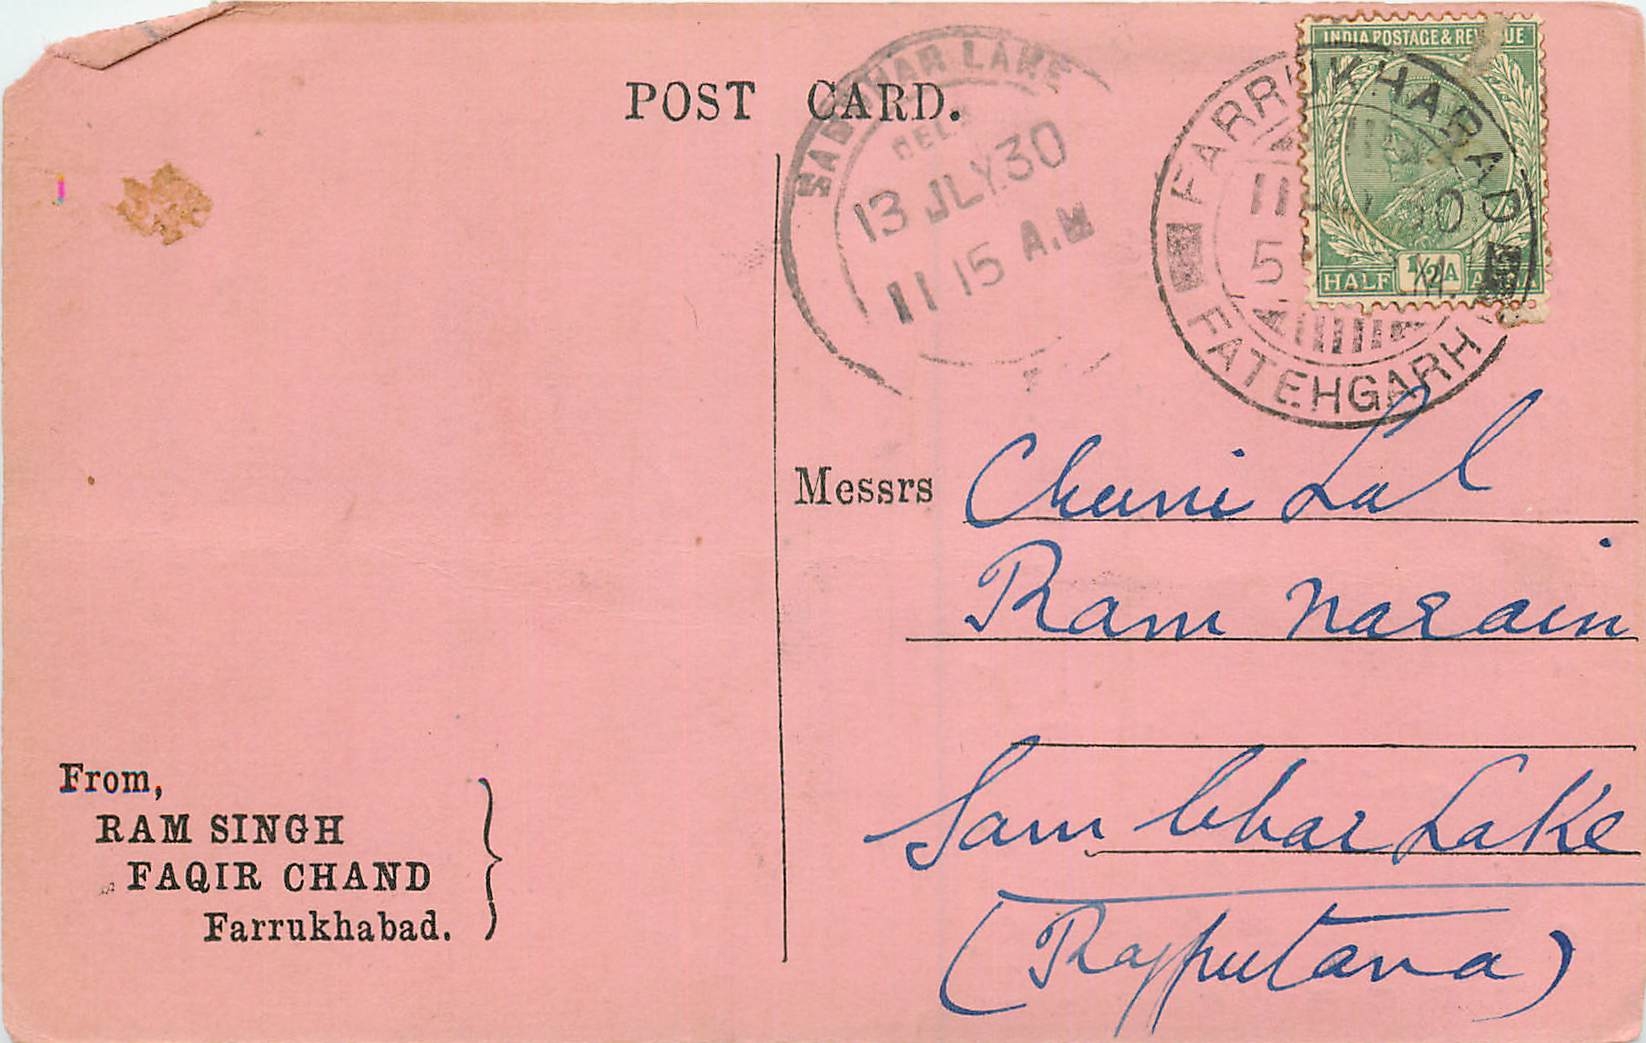 POST CARD.
SAMBHAR LAKE
DELY
13 JLY.30
11 15 A.M
INDIA POSTAGE & REVENUE
HALF 1/2A
FARRUKHABAD
11
30
5
FATEHGARH
Messrs Chuni Lal
Ram Narain
Sambhar Lake
(Rajputana)
From,
RAM SINGH
FAQIR CHAND
Farrukhabad.